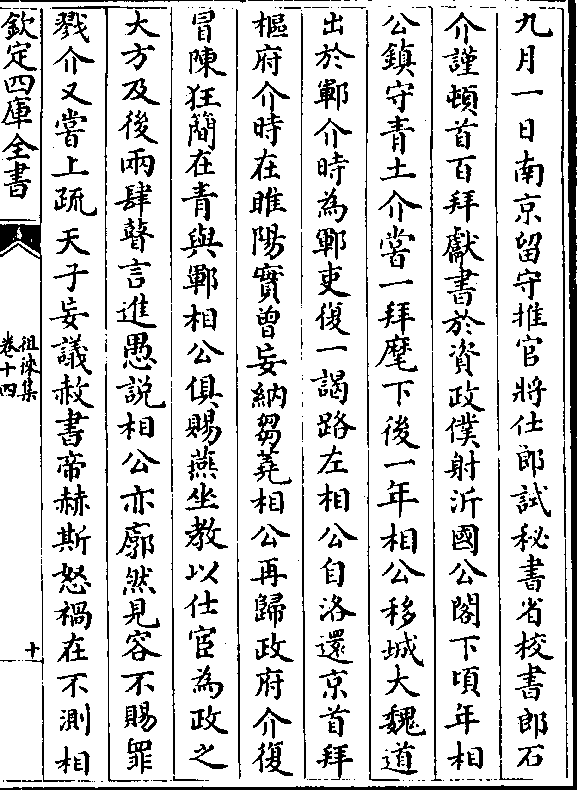 九月一日南京留守推官將仕郎試秘書省校書郎石
介謹頓首百拜獻書於資政僕射沂國公閣下頃年相
公鎮守青土介嘗一拜麾下後一年相公移城大魏道
出於鄆介時為鄆吏復一謁路左相公自洛還京首拜
樞府介時在睢陽實曾妄納芻蕘相公再歸政府介復
冒陳狂簡在青與鄆相公俱賜燕坐教以仕宦為政之
大方及後兩肆瞽言進愚說相公亦廓然見容不賜罪
戮介又嘗上疏天子妄議赦書帝赫斯怒禍在不測相
欽定四庫全書
徂徠集
卷十四
十